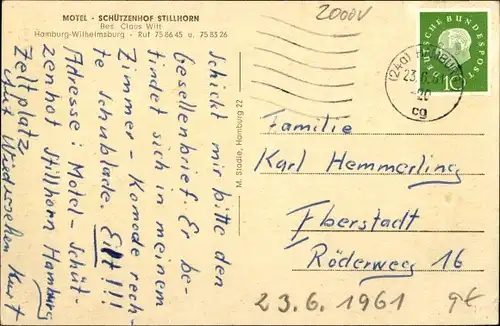 MOTEL - SCHÜTZENHOF STILLHORN
Bes. Claus Witt
Hamburg-Wilhelmsburg - Ruf 75 86 45 u. 75 83 26
Schickt mir bitte den
Gesellenbrief. Er be-
findet sich in meinem
Zimmer - Komode rech-
te Schublade. Eilt!!!
Adresse: Motel-Schüt-
zenhof Stillhorn Hamburg
Zeltplatz
Auf Wiedersehen Kurt
M. Stadie, Hamburg 22
2000V
DEUTSCHE BUNDESPOST
10
(24a) HAMBURG
23.6.61
-20
cg
Familie
Karl Hemmerling
Eberstadt
Röderweg 16
23.6.1961